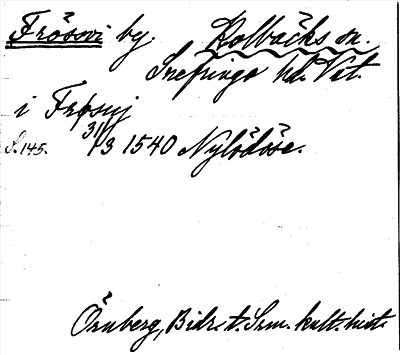 Frösvi by. Kolbäcks sn.
Snefringe hd. Vstm.
i Frøsuj
S. 145. 31/3 1540 Nylödöse.
Örnberg, Bidr. t. Svm. kult. hist.